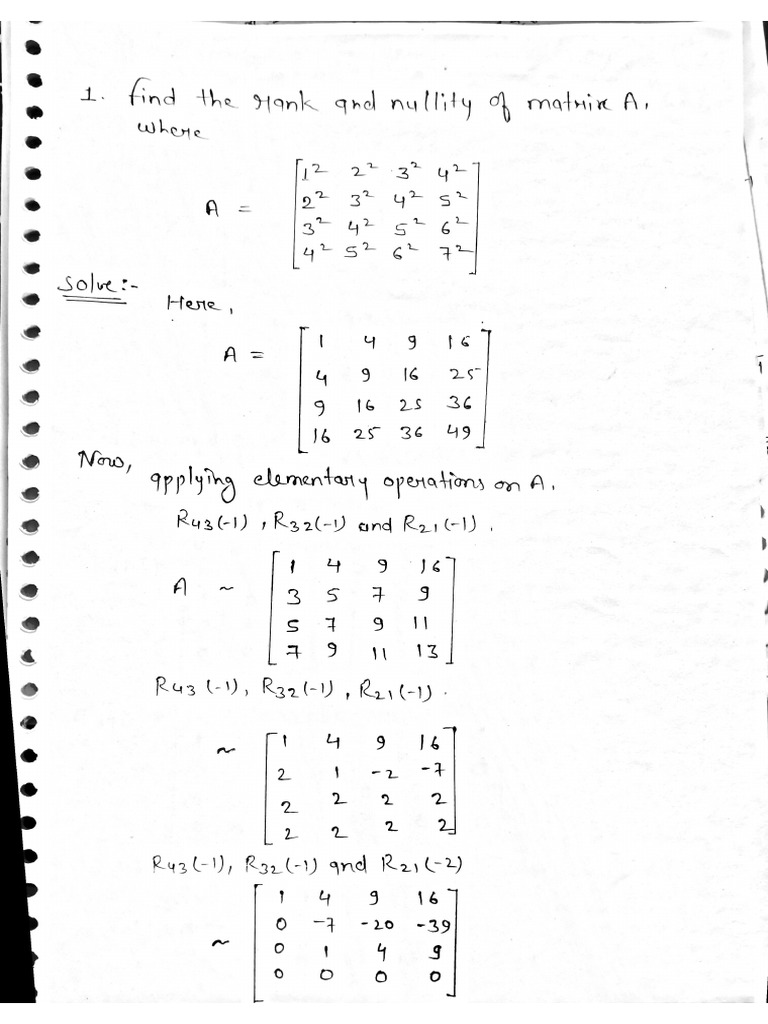 1. find the rank and nullity of matrix A,
where
A = [1² 2² 3² 4²
2² 3² 4² 5²
3² 4² 5² 6²
4² 5² 6² 7²]
Solve:-
Here,
A = [1 4 9 16
4 9 16 25
9 16 25 36
16 25 36 49]
Now, applying elementary operations on A.
R43(-1), R32(-1) and R21(-1).
A ~ [1 4 9 16
3 5 7 9
5 7 9 11
7 9 11 13]
R43(-1), R32(-1), R21(-1).
~ [1 4 9 16
2 1 -2 -7
2 2 2 2
2 2 2 2]
R43(-1), R32(-1) and R21(-2)
~ [1 4 9 16
0 -7 -20 -39
0 1 4 9
0 0 0 0]